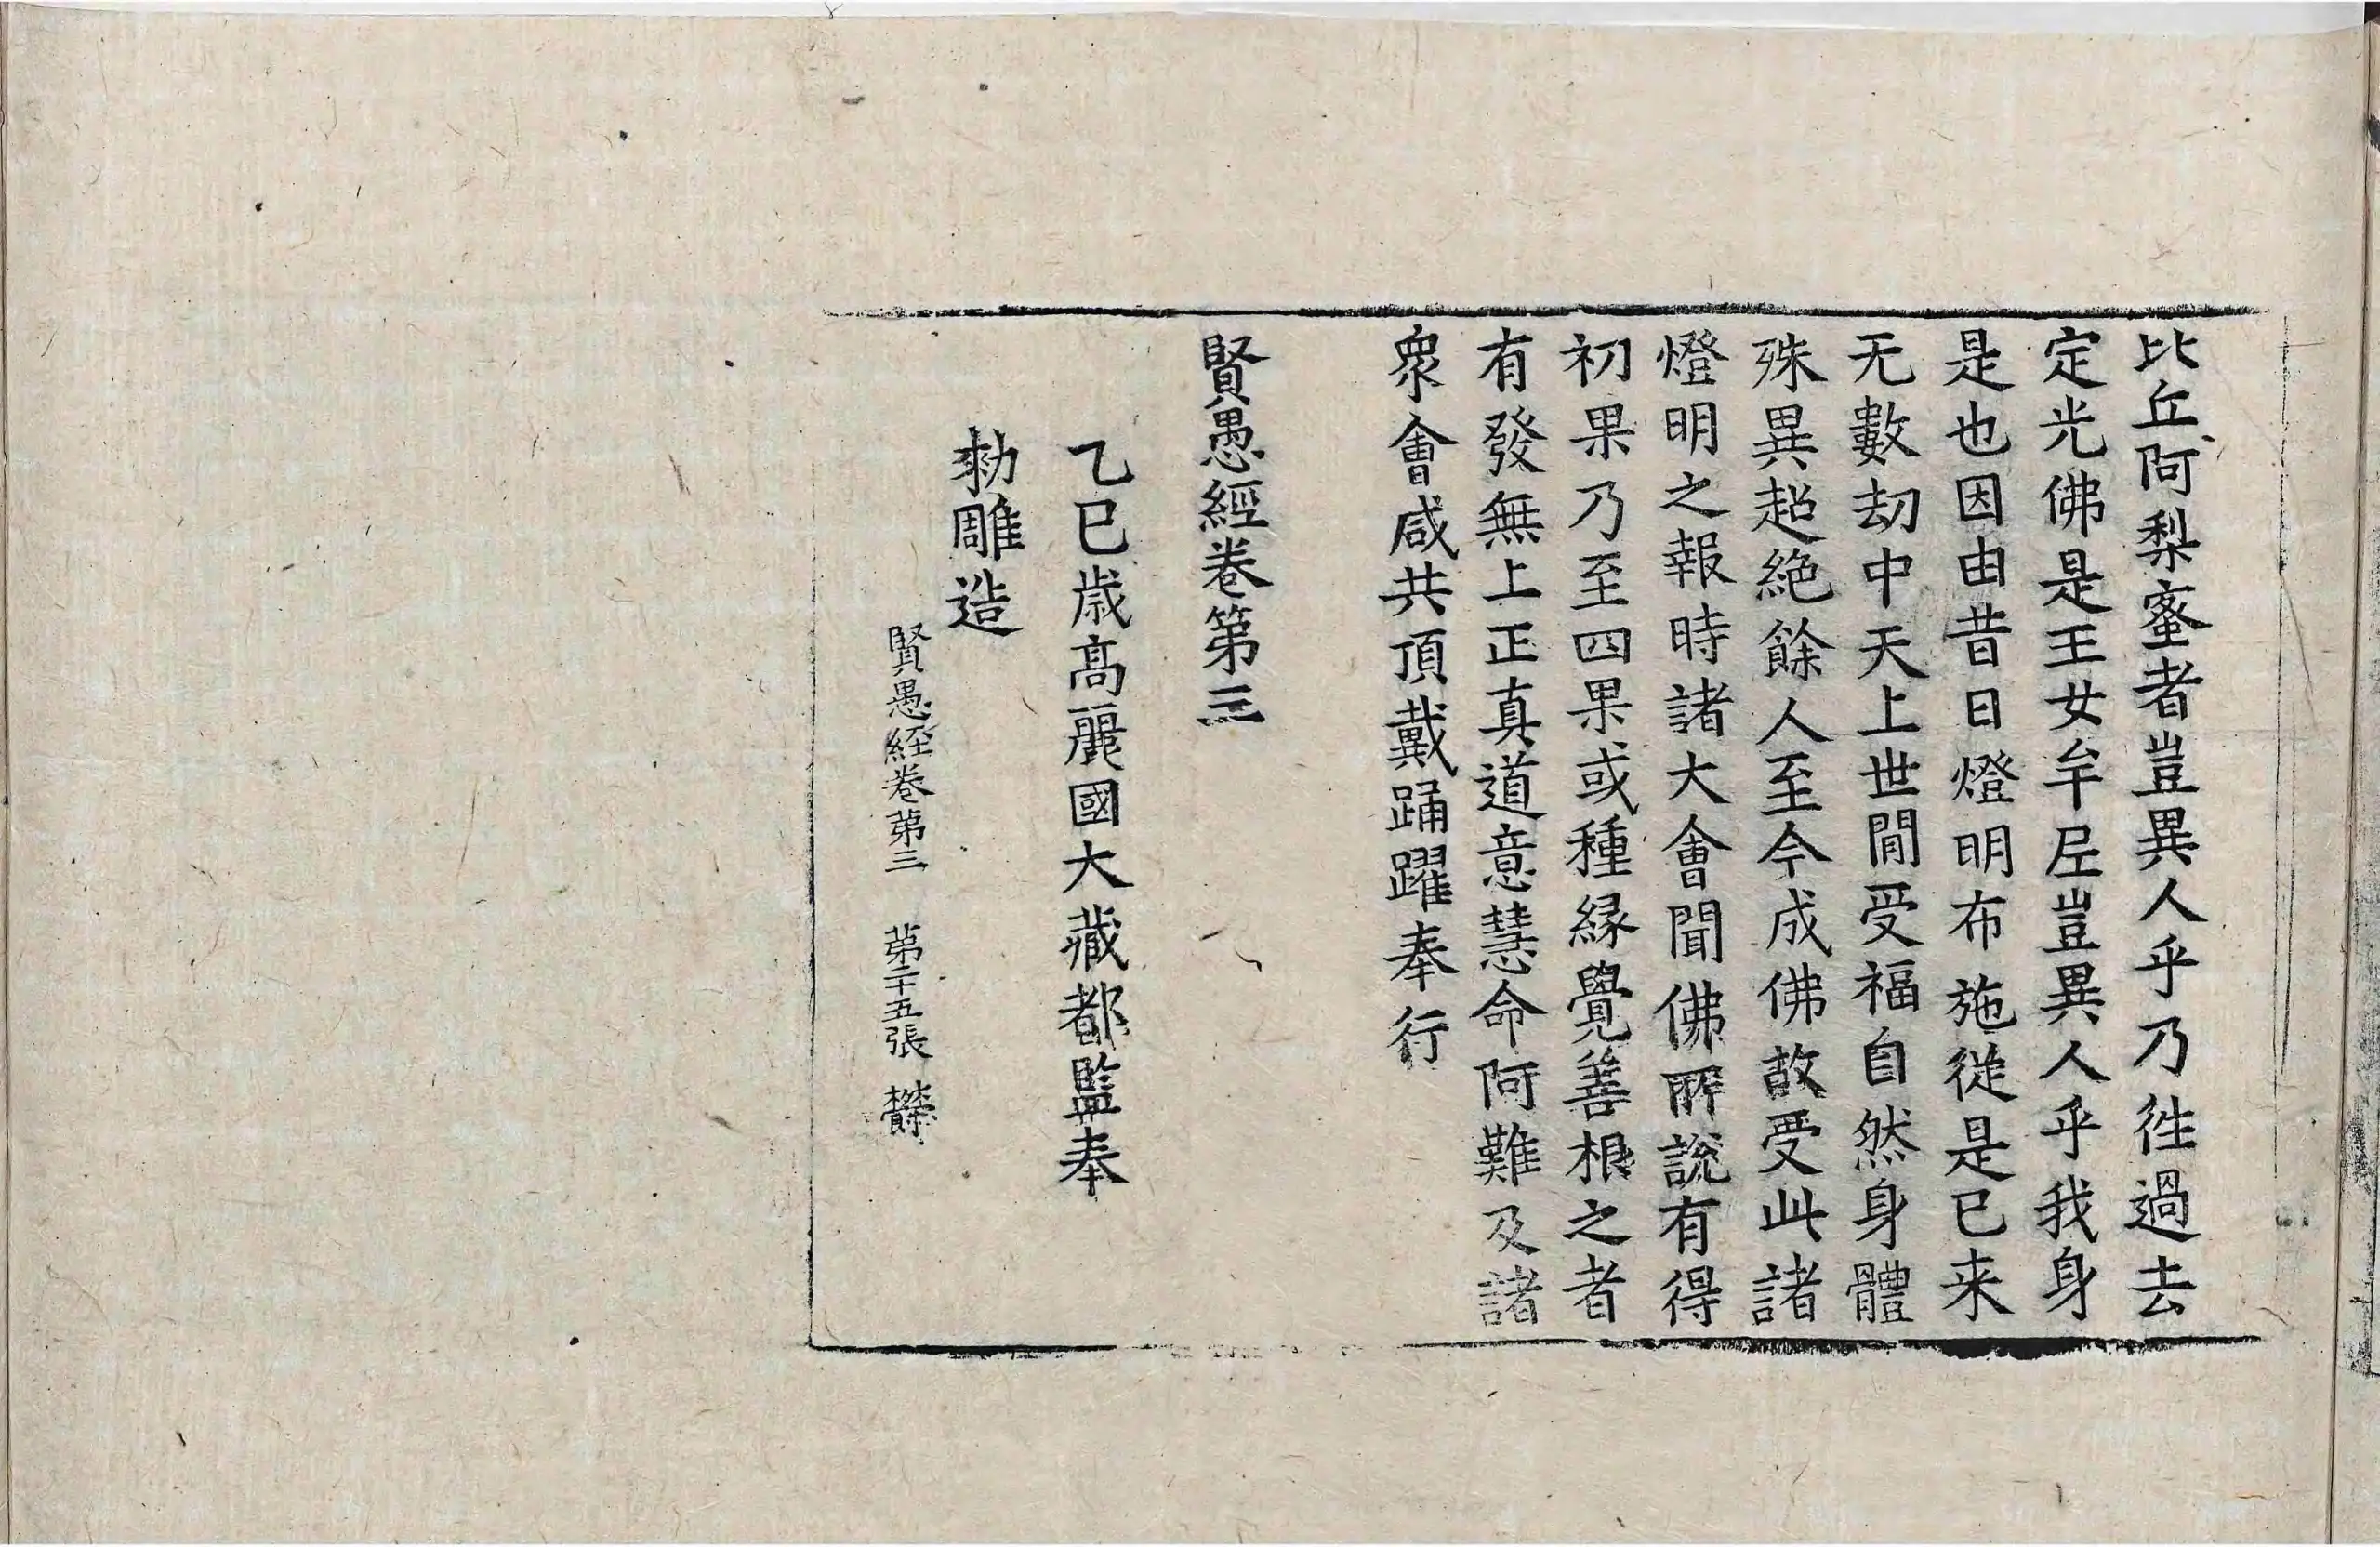 比丘阿梨蜜者豈異人乎乃徃過去
定光佛是王女牟尼豈異人乎我身
是也因由昔日燈明布施從是已来
无數劫中天上世間受福自然身體
殊異超絶餘人至今成佛故受此諸
燈明之報時諸大會聞佛所說有得
初果乃至四果或種緣覺善根之者
有發無上正真道意慧命阿難及諸
衆會咸共頂戴踊躍奉行
賢愚經卷第三
乙巳歲高麗國大藏都監奉
勑雕造
賢愚經卷第三 第二十五張 欝